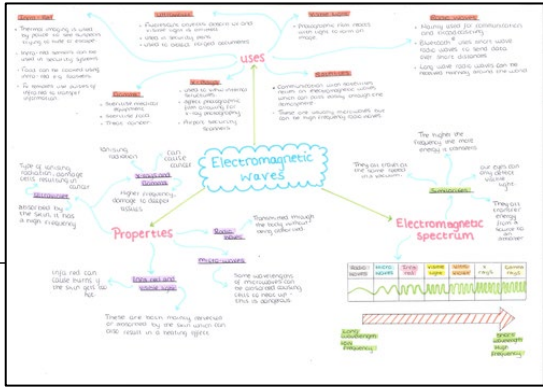 Infra-Red
• Thermal imaging is used
by police to see suspects
trying to hide or escape.
• Infra-red sensors can be
used in security systems
• Food can be cooked using
infra-red e.g. toasters.
• TV remotes use pulses of
infra-red to transfer
information.
Ultraviolet
• Used in security pens
• used to detect forged documents
Visible light
• Photographic film reacts
with light to form an
image.
Radio waves
• Mainly used for communication
and broadcasting
• Bluetooth uses short wave
radio waves to send data
over short distances
• Long wave radio waves can be
received halfway around the world
uses
Gamma
• Sterilise medical
equipment
• Sterilise food
• Treat cancer
X-Rays
• used to view internal
structures
• Affect photographic
film allowing for
x-ray photography
• Airport security
scanners
Satellites
• Communication with satellites
relies on electromagnetic waves
which can pass easily through the
atmosphere.
• These are usually microwaves but
can be high frequency radio waves
Electromagnetic
waves
Type of ionising
radiation, damage
cells resulting in
cancer
Ultraviolet
absorbed by
the skin as it has
a high frequency
ionising
radiation
can
cause
cancer
X-rays and
Gamma
higher frequency,
damage to deeper
tissues
Properties
Radio
waves
Transmitted through
the body without
being absorbed.
Micro-waves
Some wavelengths
of microwaves can
be absorbed causing
cells to heat up -
this is dangerous
Infra red can
cause burns if
the skin gets too
hot
Infra red and
visible light
These are both mainly reflected
or absorbed by the skin which can
also result in a heating effect
The higher the
frequency the
more energy it transfers
They all travel at
the same speed
in a vacuum
our eyes can
only detect
visible
light
Similarities
They all
transfer
energy
from a
source to
an
absorber
Electromagnetic
spectrum
Radio-
waves
Micro-
waves
Infra
red
Visible
light
Ultra-
violet
X
rays
Gamma
rays
Long
wavelength
low
frequency
Short
wavelength
High
frequency